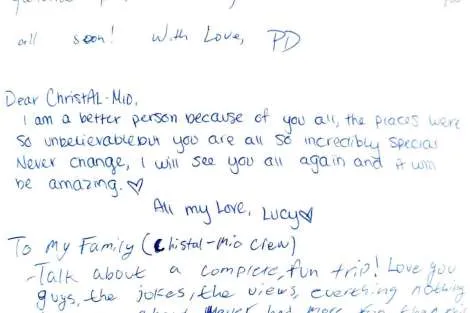 all soon! With Love, PD
Dear ChristAL-Mio,
I am a better person because of you all, the places were
so unbelievable but you are all so incredibly special
Never change, I will see you all again and it will
be amazing. ♡
All my Love, Lucy♡
To My Family (Chistal-Mio Clew)
-Talk about a complete, fun trip! Love you
guys, the jokes, the views, everything nothing